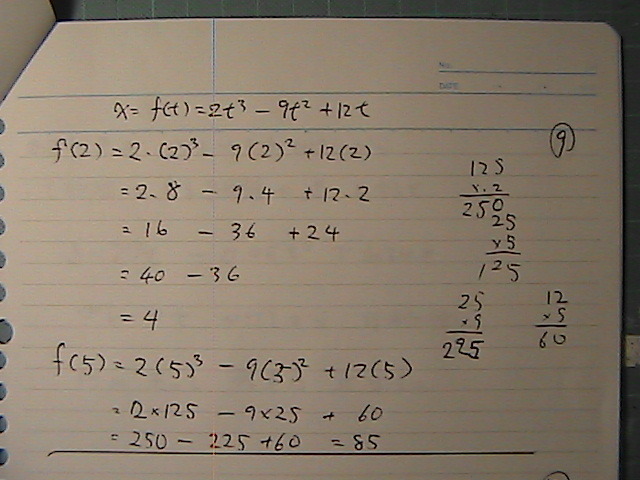 No.
DATE
x = f(t) = 2t³ − 9t² + 12t
⑨
f(2) = 2·(2)³ − 9(2)² + 12(2)
= 2·8 − 9·4 + 12·2
= 16 − 36 + 24
= 40 − 36
= 4
f(5) = 2(5)³ − 9(5)² + 12(5)
= 2×125 − 9×25 + 60
= 250 − 225 + 60 = 85
125
×.2
250
25
×5
125
25
×9
225
12
×5
60